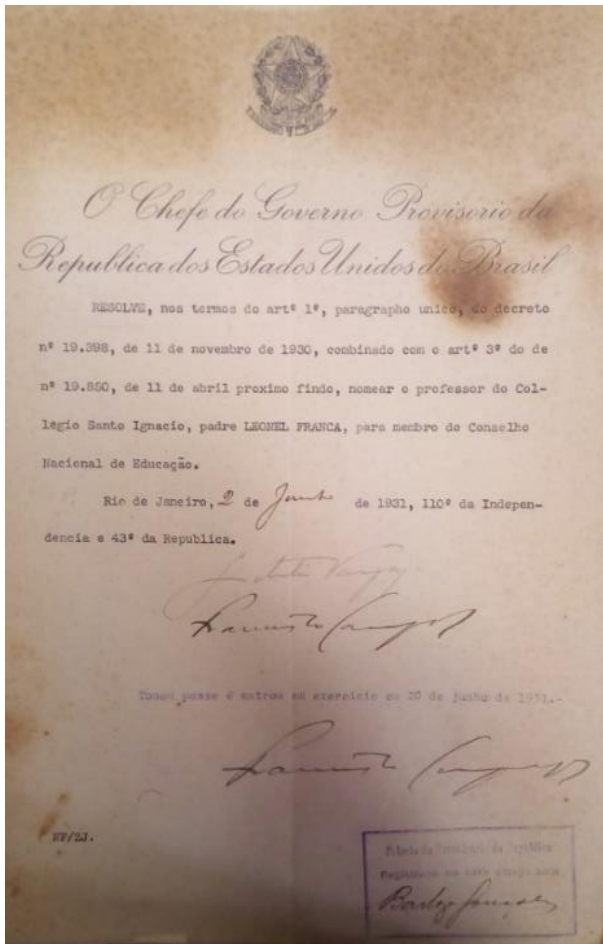 O Chefe do Governo Provisorio da
Republica dos Estados Unidos do Brasil
RESOLVE, nos termos do artº 1º, paragrapho unico, do decreto
nº 19.398, de 11 de novembro de 1930, combinado com o artº 3º do de
nº 19.850, de 11 de abril proximo findo, nomear o professor do Col-
legio Santo Ignacio, padre LEONEL FRANCA, para membro do Conselho
Nacional de Educação.
Rio de Janeiro, 2 de Junho de 1931, 110º da Indepen-
dencia e 43º da Republica.
Getulio Vargas
Francisco Campos
Tomou posse e entrou em exercicio em 20 de junho de 1931.-
Francisco Campos
da Republica